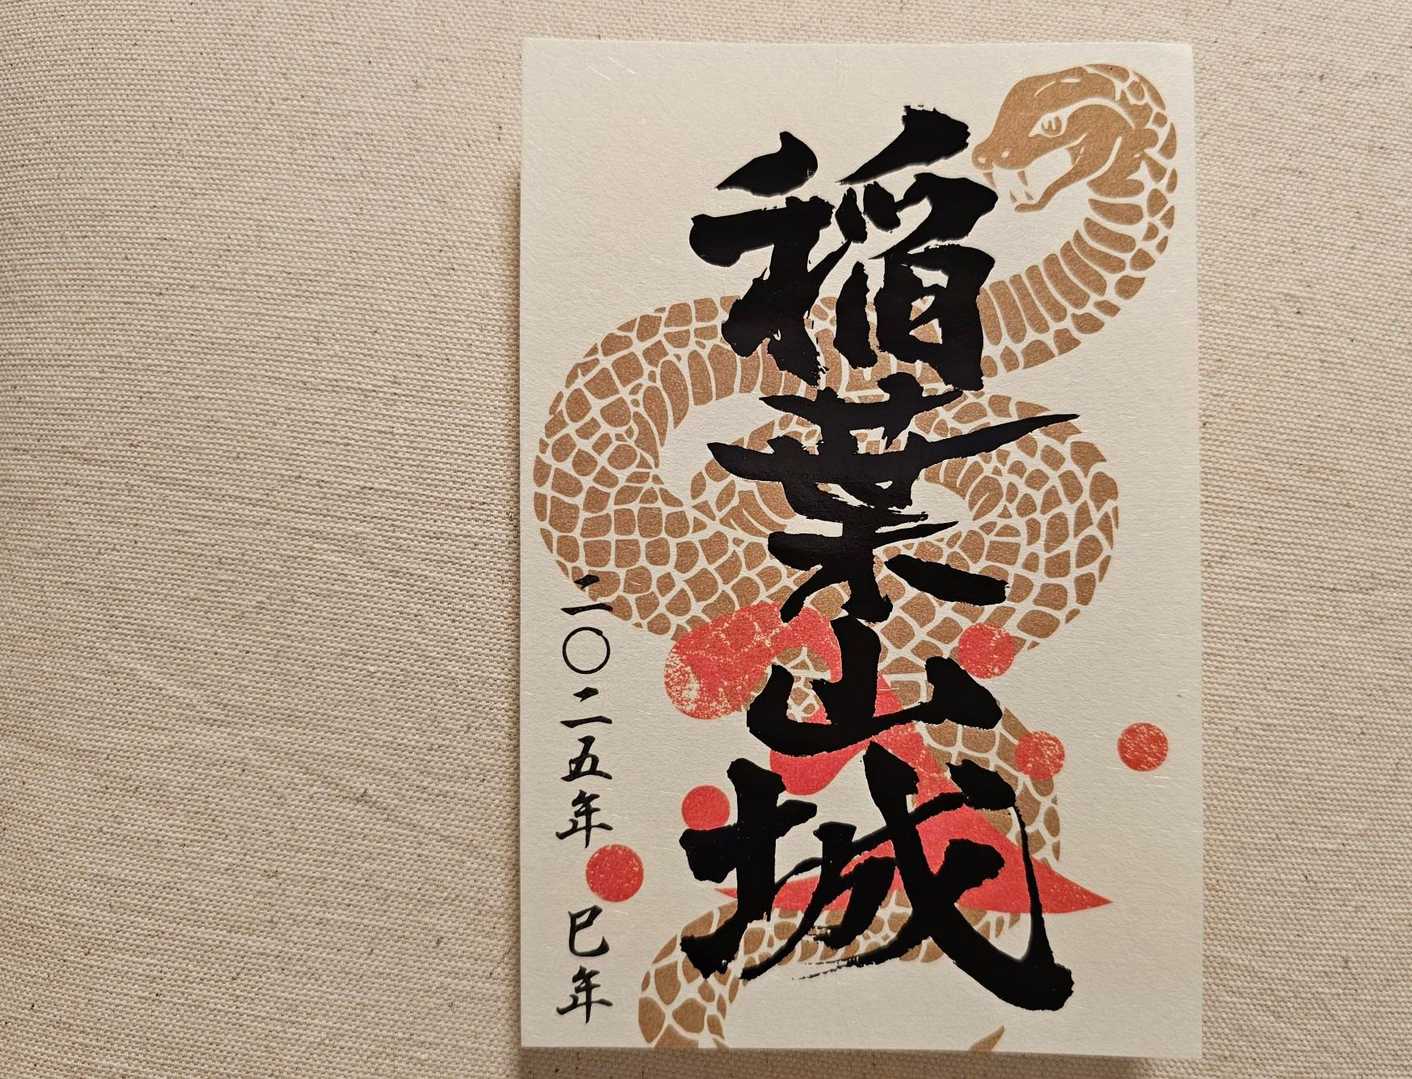 稲葉山城
二〇二五年 巳年